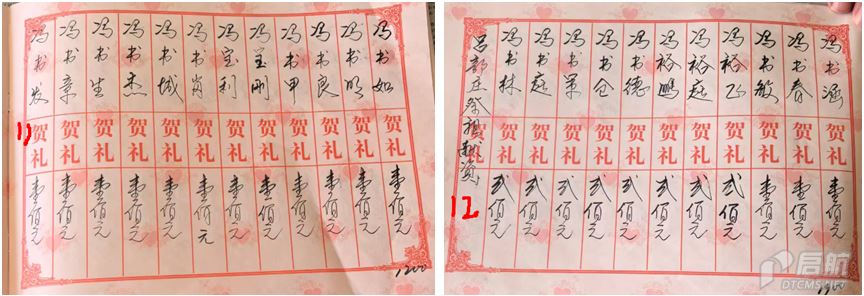 冯书如 贺礼 壹佰元
冯书明 贺礼 壹佰元
冯书良 贺礼 壹佰元
冯书甲 贺礼 壹佰元
冯宝刚 贺礼 壹佰元
冯宝利 贺礼 壹佰元
冯书肖 贺礼 壹佰元
冯书城 贺礼 壹佰元
冯书杰 贺礼 壹佰元
冯书生 贺礼 壹佰元
冯书章 贺礼 壹佰元
冯书发 贺礼 壹佰元
11
1200
冯书涵 贺礼 壹佰元
冯书春 贺礼 壹佰元
冯书敏 贺礼 壹佰元
冯裕飞 贺礼 贰佰元
冯裕超 贺礼 贰佰元
冯裕鹏 贺礼 贰佰元
冯书德 贺礼 贰佰元
冯书仓 贺礼 贰佰元
冯书军 贺礼 贰佰元
冯书庭 贺礼 贰佰元
冯书林 贺礼 贰佰元
祭祖献资
12
1900
启航
DTCMS.NET